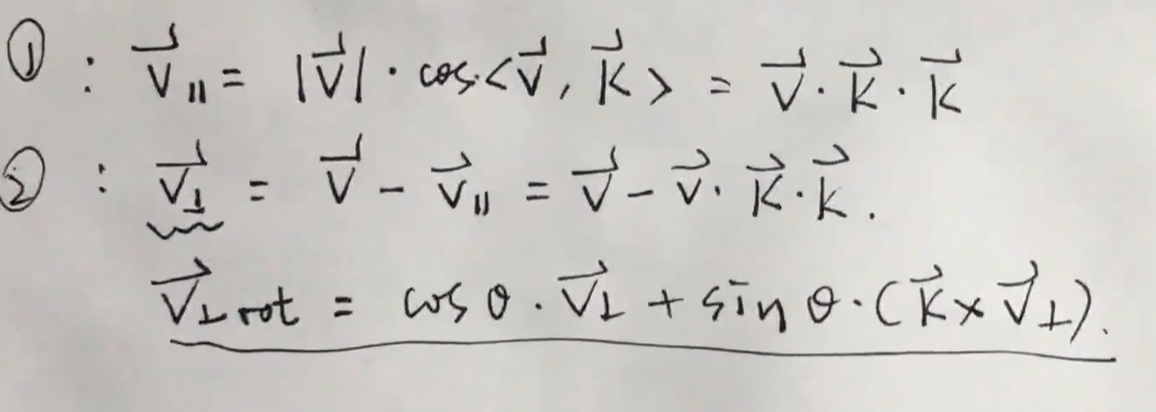 ①: $\vec{V}_{\parallel} = |\vec{V}| \cdot \cos<\vec{V}, \vec{K}> = \vec{V} \cdot \vec{K} \cdot \vec{K}$
②: $\vec{V}_{\perp} = \vec{V} - \vec{V}_{\parallel} = \vec{V} - \vec{V} \cdot \vec{K} \cdot \vec{K}.$
$\vec{V}_{\perp rot} = \cos\theta \cdot \vec{V}_{\perp} + \sin\theta \cdot (\vec{K} \times \vec{V}_{\perp}).$